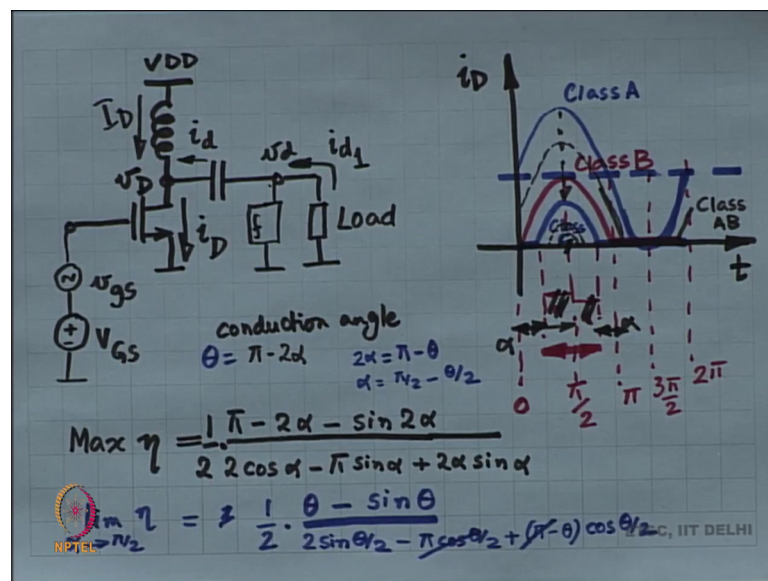 VDD
I_D
i_d
v_d
i_d1
v_D
i_D
f
Load
v_gs
V_GS
i_D
Class A
Class B
Class
Class AB
t
α
α
0
π/2
π
3π/2
2π
conduction angle
θ = π - 2α
2α = π - θ
α = π/2 - θ/2
Max η = 1/2 · (π - 2α - sin 2α)/(2 cos α - π sin α + 2α sin α)
η = 1/2 · (θ - sin θ)/(2 sin θ/2 - π cos θ/2 + (π - θ) cos θ/2)
→π/2
NPTEL
IIT DELHI